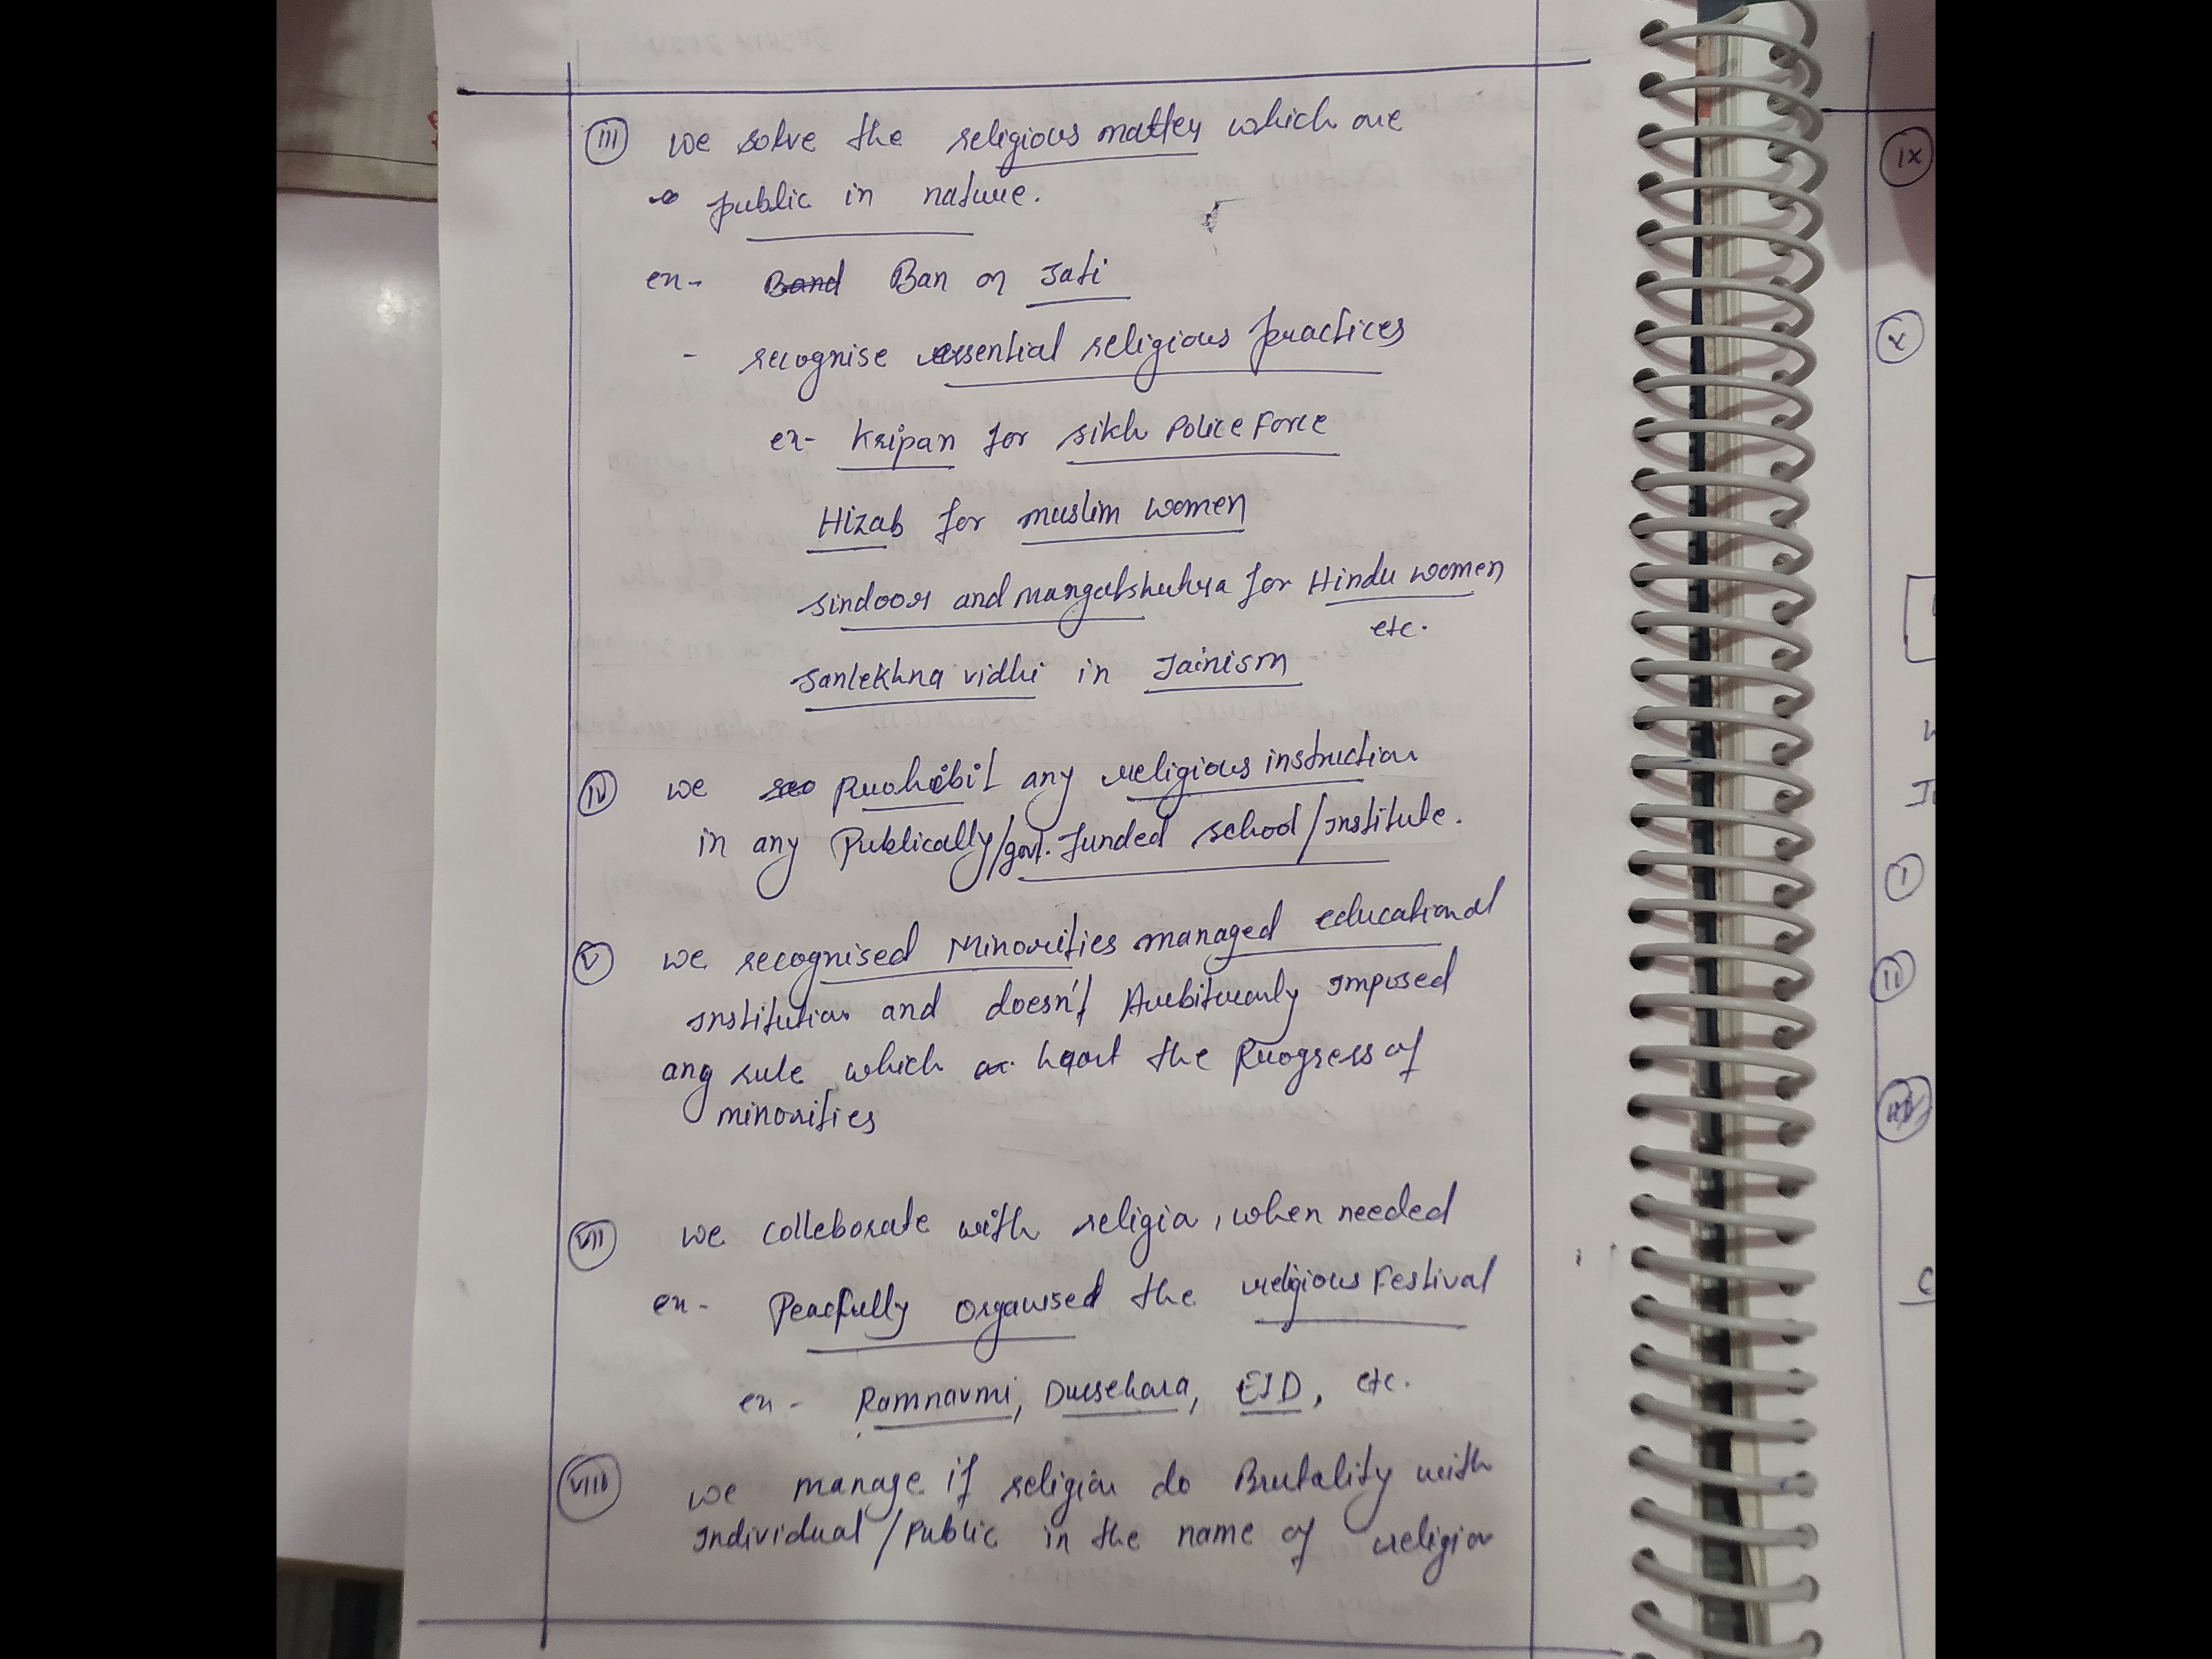 (iii) we solve the religious matter which are
public in nature.
ex- Band Ban on Sati
- recognise essential religious practices
ex- Kripan for sikh Police Force
Hizab for muslim women
sindoor and mangalshutra for Hindu women
etc.
Sanlekhna vidhi in Jainism
(iv) we Prohibit any religious instruction
in any Publically/govt. funded school/Institute.
(v) we recognised Minorities managed educational
Institution and doesn't Arbitrarly Imposed
any rule which hurt the Progress of
minorities
(vii) we colleborate with religion, when needed
ex- Peacfully organised the religious Festival
ex- Ramnavmi, Dussehara, EID, etc.
(viii) we manage if religion do Brutality with
Individual/Public in the name of religion
ix
x
i
ii